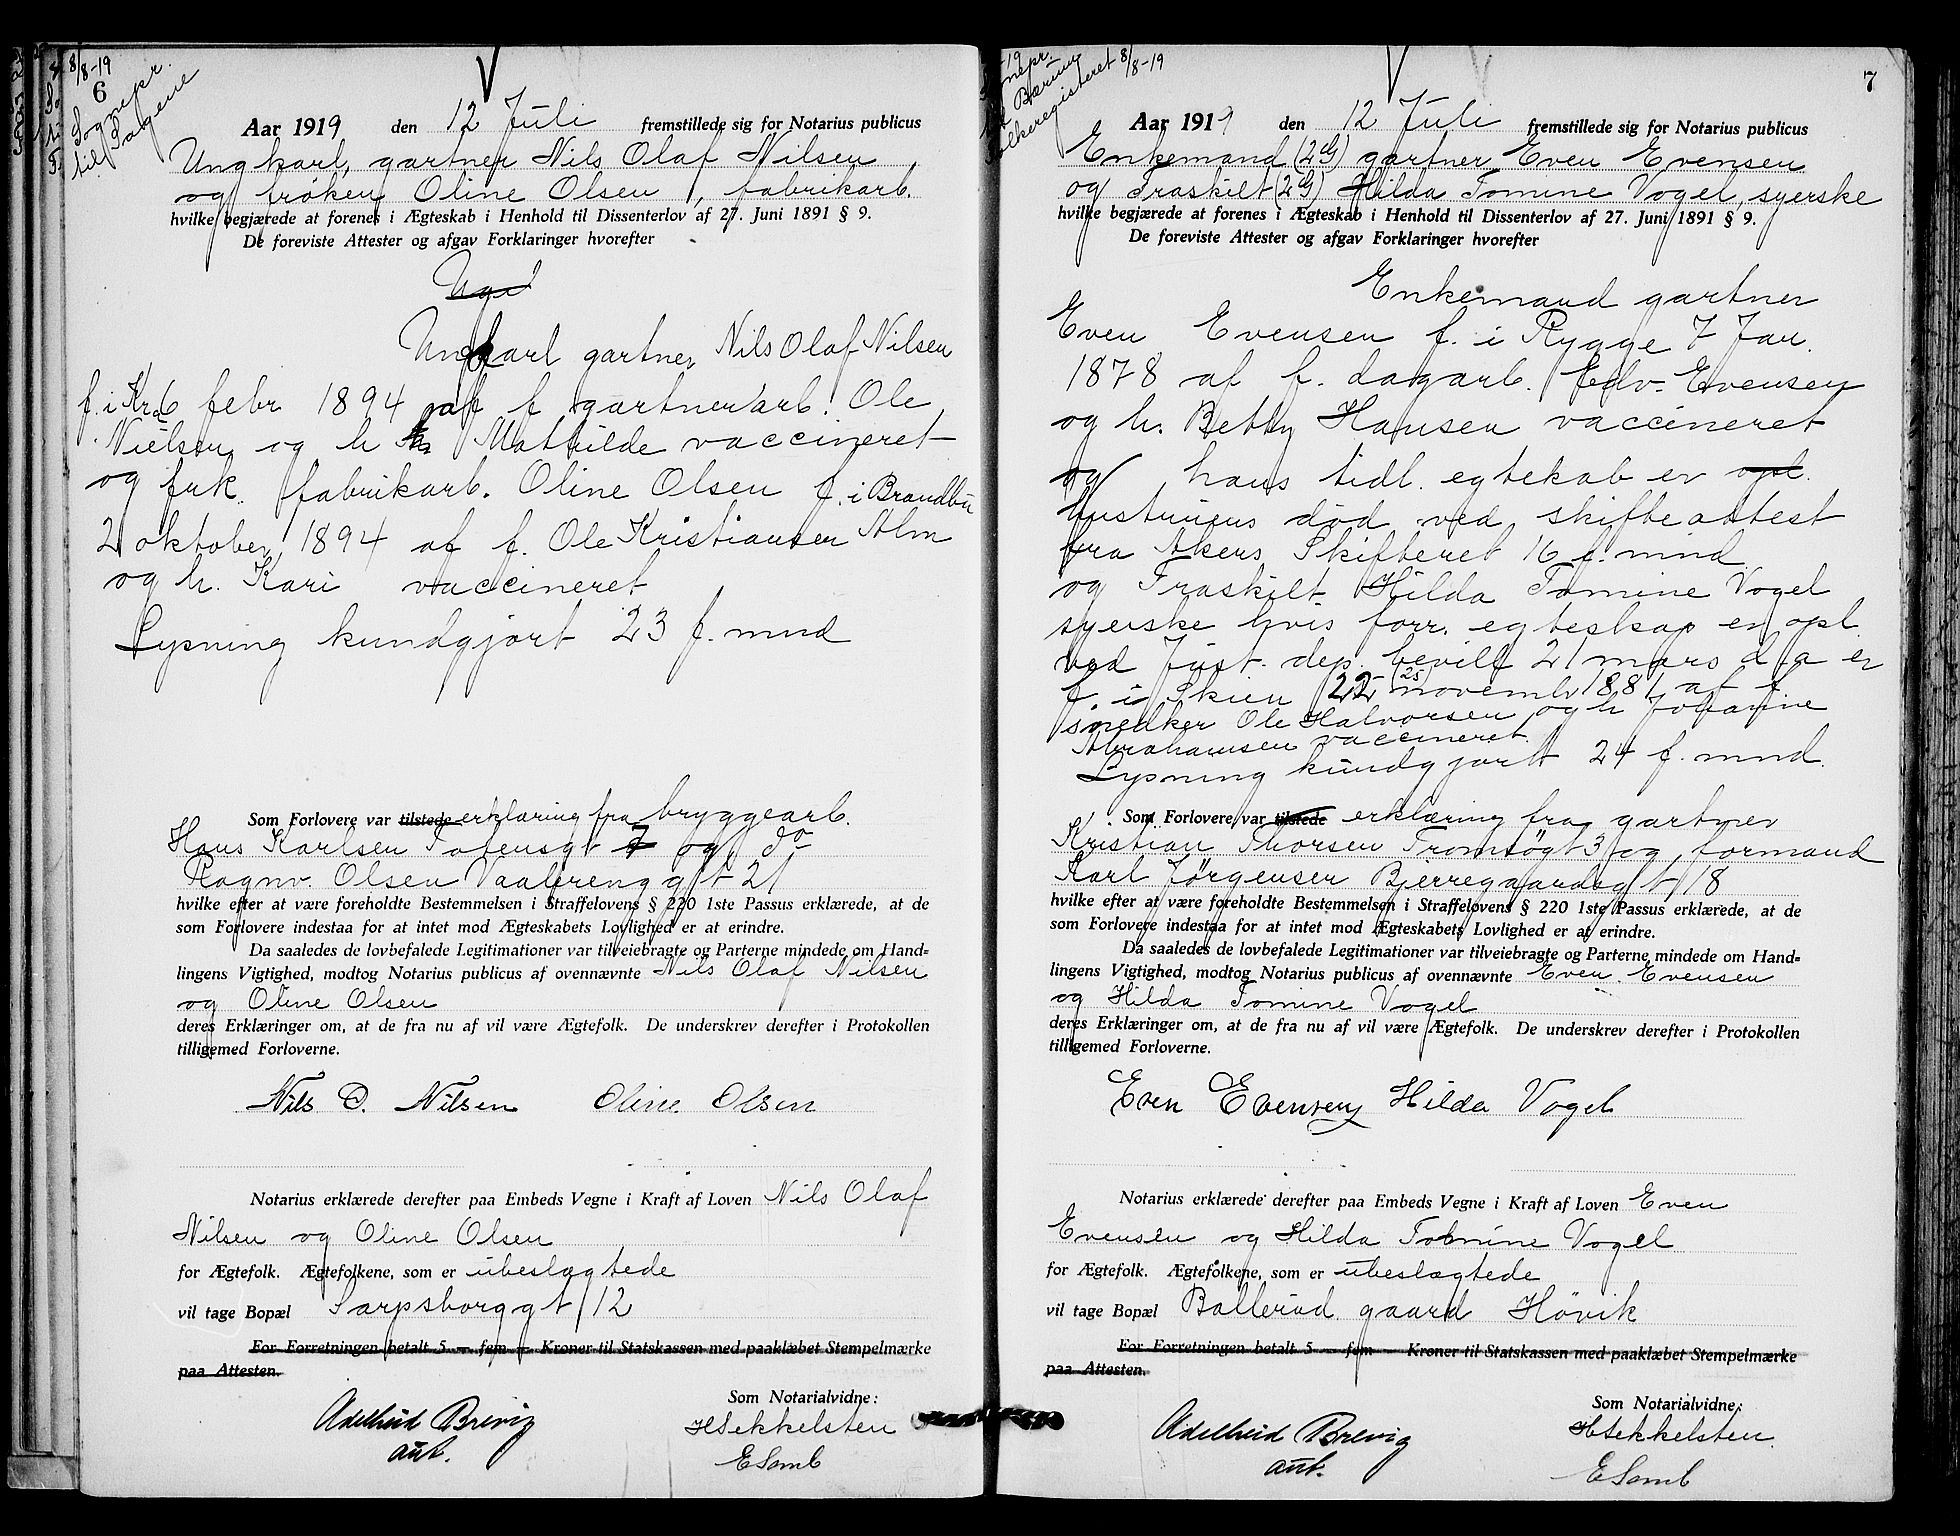 8/8-19
6
Sognepr.
til Sagene
Aar 1919 den 12 Juli fremstillede sig for Notarius publicus
Ungkarl, gartner Nils Olaf Nilsen
og frøken Oline Olsen, fabrikarb.
hvilke begjærede at forenes i Ægteskab i Henhold til Dissenterlov af 27. Juni 1891 § 9.
De foreviste Attester og afgav Forklaringer hvorefter
Ungkarl gartner Nils Olaf Nilsen
f. i Kra 6 febr 1894 af f gartnerarb. Ole
Nielsen og h Mathilde vaccineret
og frk. fabrikarb. Oline Olsen f. i Brandbu
2 oktober 1894 af f. Ole Kristiansen Alm
og h. Kari vaccineret
Lysning kundgjort 23 f. mnd
Som Forlovere var tilstede erklæring fra bryggearb.
Hans Karlsen Totensgt 7 og do
Ragnv. Olsen Vaalerenggt 21
hvilke efter at være foreholdte Bestemmelsen i Straffelovens § 220 1ste Passus erklærede, at de
som Forlovere indestaa for at intet mod Ægteskabets Lovlighed er at erindre.
Da saaledes de lovbefalede Legitimationer var tilveiebragte og Parterne mindede om Hand-
lingens Vigtighed, modtog Notarius publicus af ovennævnte Nils Olaf Nilsen
og Oline Olsen
deres Erklæringer om, at de fra nu af vil være Ægtefolk. De underskrev derefter i Protokollen
tilligemed Forloverne.
Nils O. Nilsen Oline Olsen
Notarius erklærede derefter paa Embeds Vegne i Kraft af Loven Nils Olaf
Nilsen og Oline Olsen
for Ægtefolk. Ægtefolkene, som er ubeslægtede
vil tage Bopæl Sarpsborggt 12
For Forretningen betalt 5 — fem — Kroner til Statskassen med paaklæbet Stempelmærke
paa Attesten.
Som Notarialvidne:
Adelheid Brevig
aut.
HSekkelsten
ESamb
8/8-19
7
Aar 1919 den 12 Juli fremstillede sig for Notarius publicus
Enkemand (2G) gartner Even Evensen
og Fraskilt (2G) Hilda Tomine Vogel, syerske
hvilke begjærede at forenes i Ægteskab i Henhold til Dissenterlov af 27. Juni 1891 § 9.
De foreviste Attester og afgav Forklaringer hvorefter
Enkemand gartner
Even Evensen f. i Rygge 7 Jan.
1878 af f. dagarb. Edv. Evensen
og h. Betty Hansen vaccineret
og hans tidl. egtekab er opl.
hustruens död ved skifteattest
fra Akers Skifteret 16 f. mnd
og Fraskilt Hilda Tomine Vogel
syerske hvis forr. egteskap er opl.
ved Just. dep. bevill 21 mars d. a er
f. i Skien 22 (25) novembr 1881 af f.
snedker Ole Halvorsen og h Johanne
Abrahamsen vaccineret
Lysning kundgjort 24 f. mnd.
Som Forlovere var tilstede erklæring fra gartner
Kristian Thorsen Tromsögt 3 og formand
Karl Jörgensen Bjerregaardsgt 18
hvilke efter at være foreholdte Bestemmelsen i Straffelovens § 220 1ste Passus erklærede, at de
som Forlovere indestaa for at intet mod Ægteskabets Lovlighed er at erindre.
Da saaledes de lovbefalede Legitimationer var tilveiebragte og Parterne mindede om Hand-
lingens Vigtighed, modtog Notarius publicus af ovennævnte Even Evensen
og Hilda Tomine Vogel
deres Erklæringer om, at de fra nu af vil være Ægtefolk. De underskrev derefter i Protokollen
tilligemed Forloverne.
Even Evensen Hilda Vogel
Notarius erklærede derefter paa Embeds Vegne i Kraft af Loven Even
Evensen og Hilda Tomine Vogel
for Ægtefolk. Ægtefolkene, som er ubeslægtede
vil tage Bopæl Ballerud gaard Hövik
For Forretningen betalt 5 — fem — Kroner til Statskassen med paaklæbet Stempelmærke
paa Attesten.
Som Notarialvidne:
Adelheid Brevig
aut.
HSekkelsten
ESamb